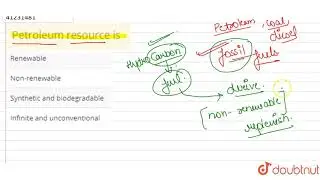 41231481
Petroleum resource is
Renewable
Non-renewable
Synthetic and biodegradable
Infinite and unconventional
Petroleum, coal
diesel
Hydro Carbon
fossil fuels
fuel
derive
non-renewable
replenish.
doubtnut